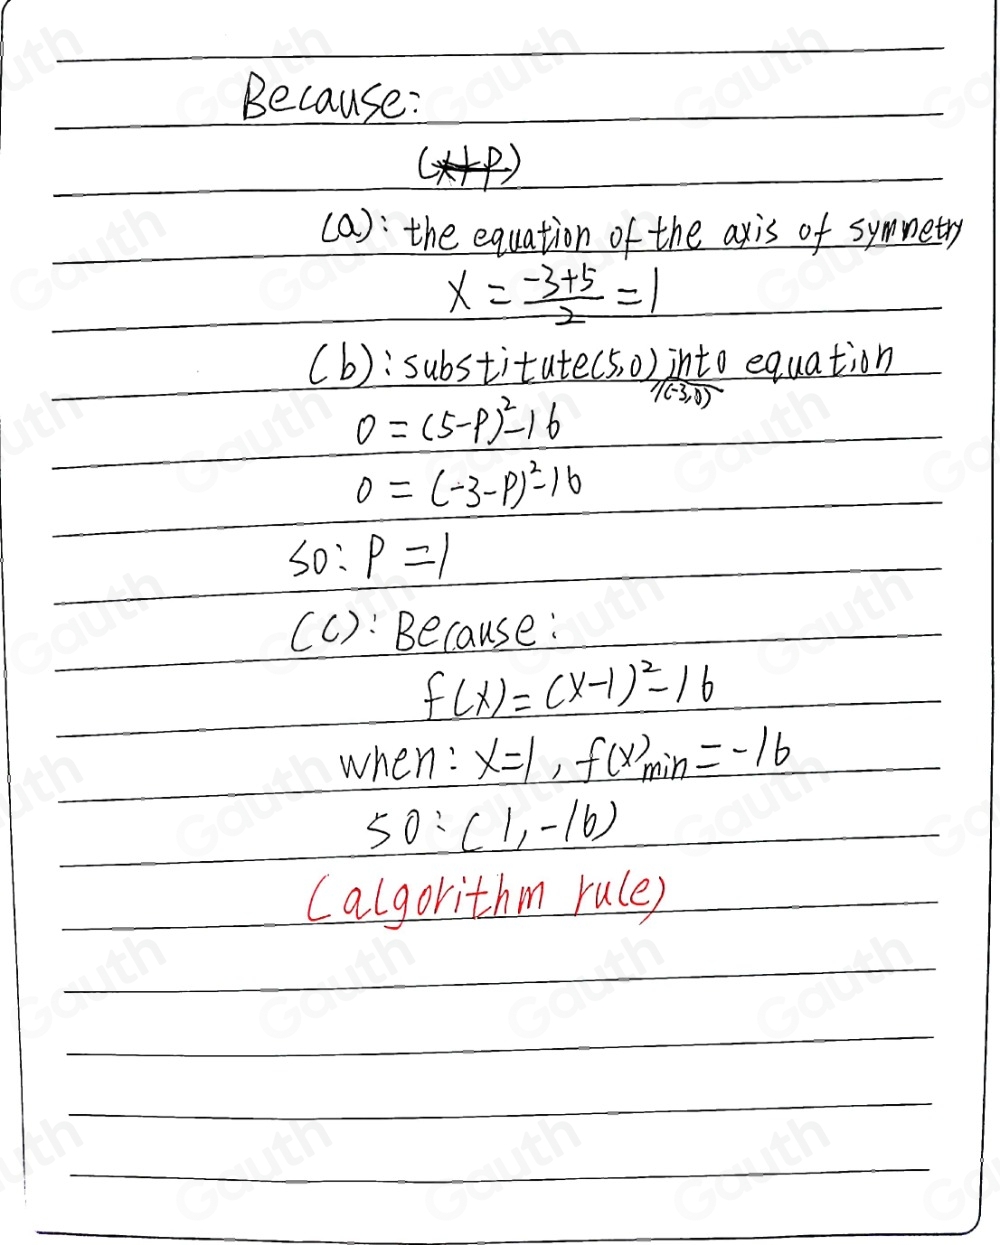 Because:
(a): the equation of the axis of symmetry
x = \frac{-3+5}{2} = 1
(b): substitute (5,0) into equation
/(-3,0)
0 = (5-P)²-16
0 = (-3-P)²-16
so: P = 1
(c): Because:
f(x) = (x-1)²-16
when: x=1, f(x)min = -16
so: (1, -16)
(algorithm rule)